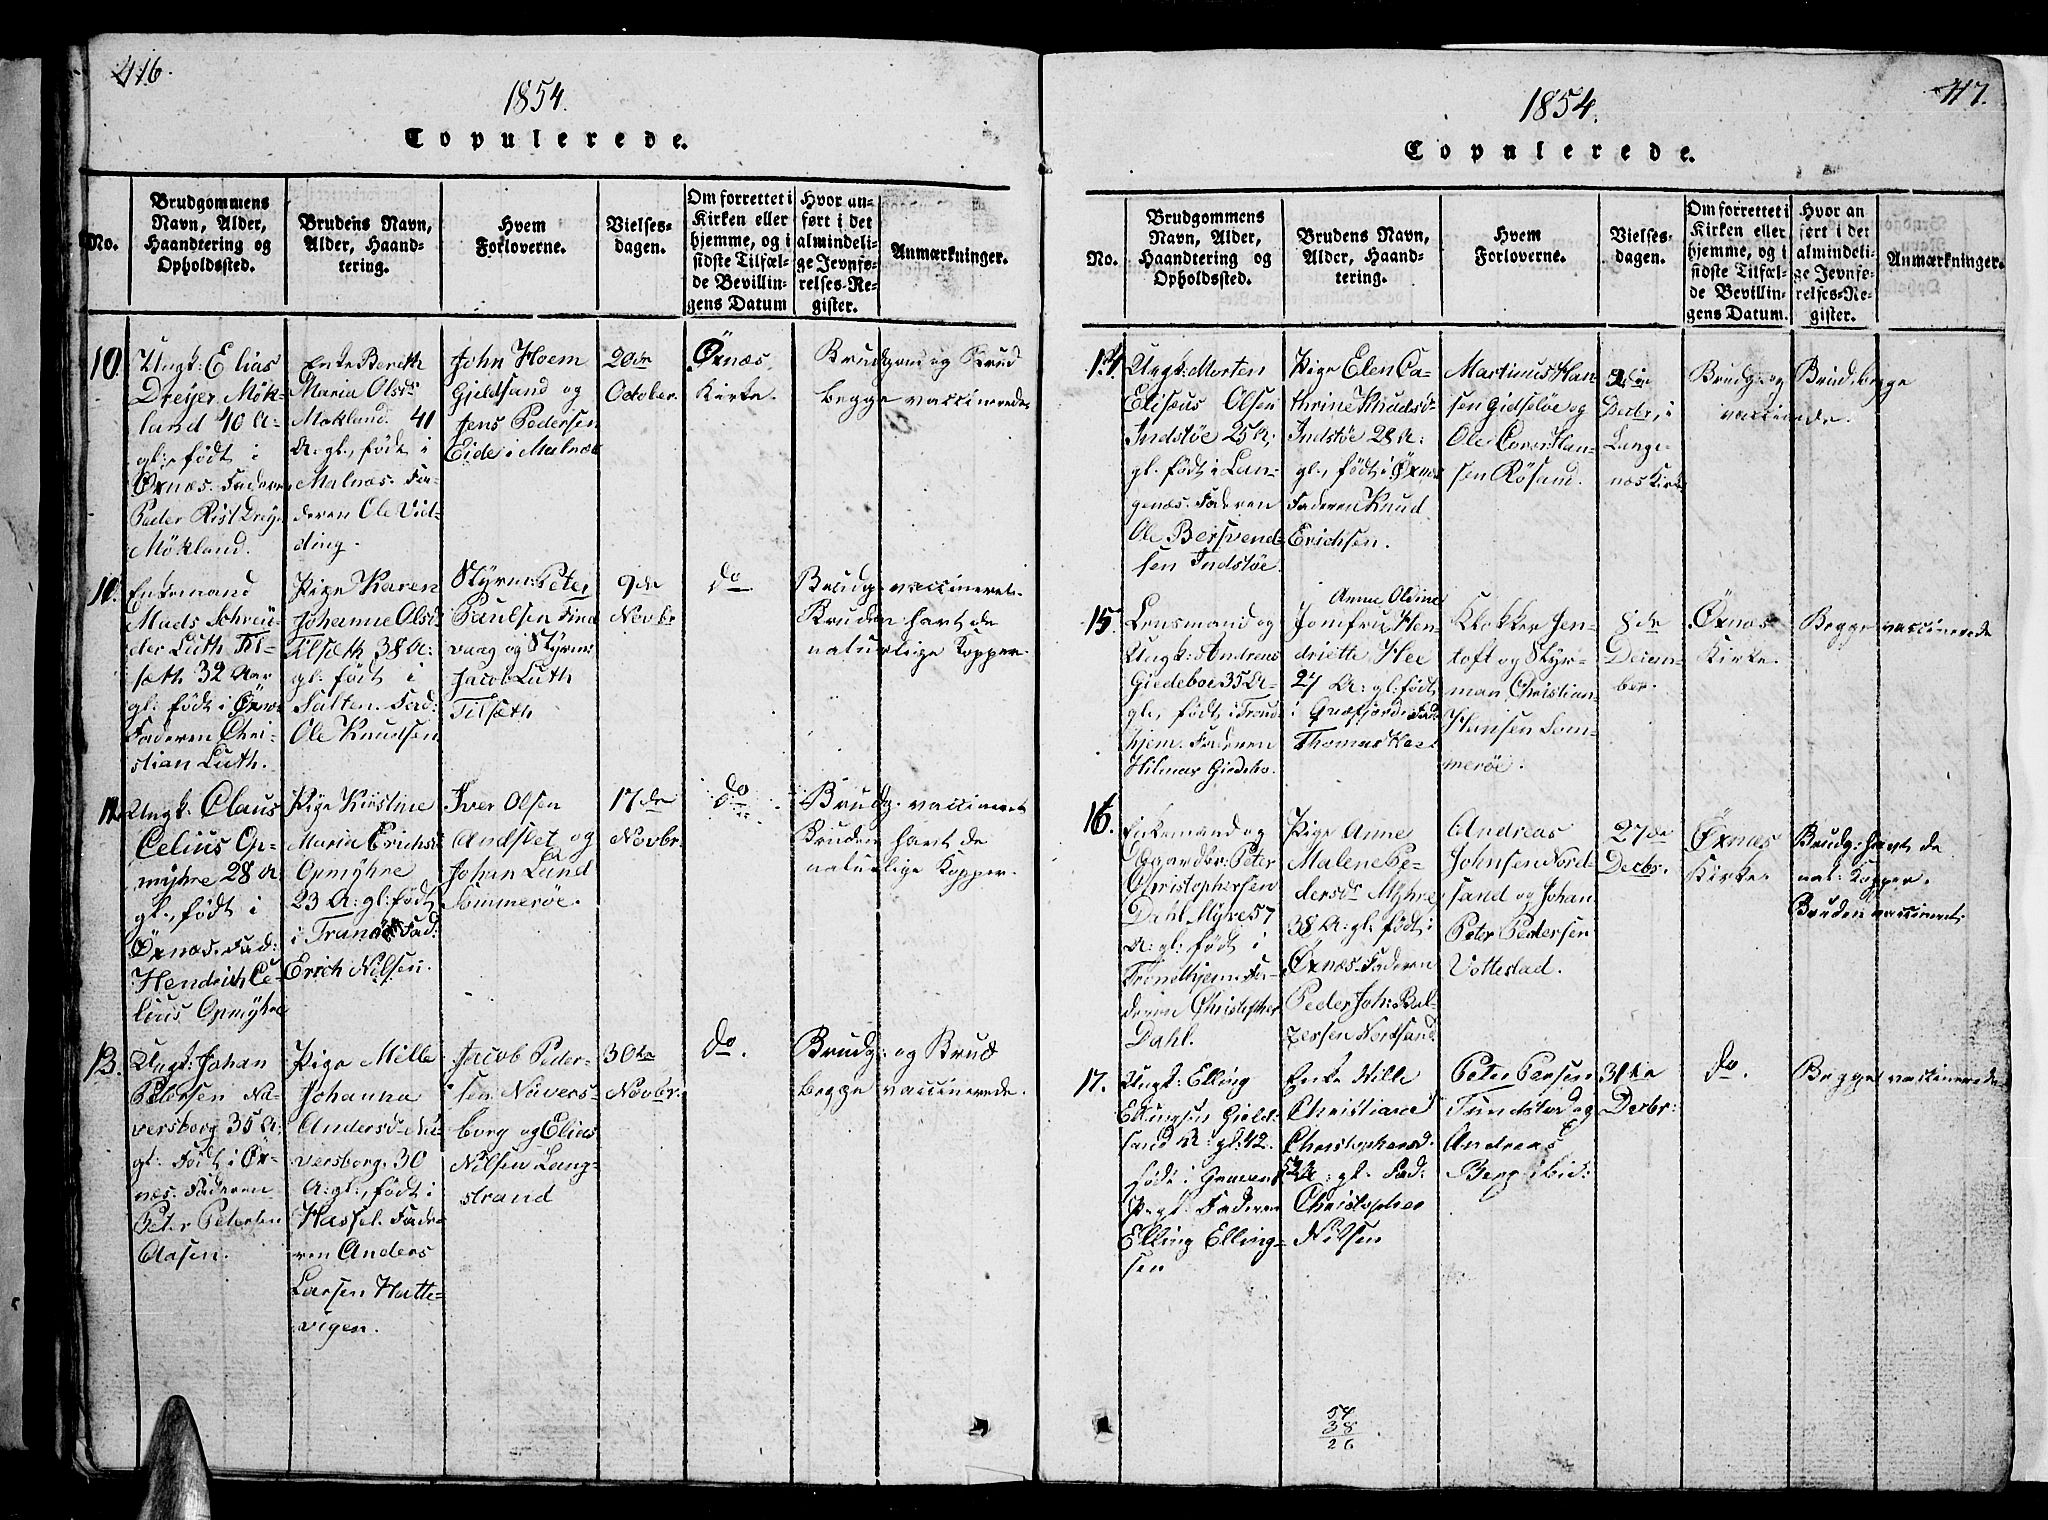 416.
1854.
Copulerede.
No.
Brudgommens
Navn, Alder,
Haandtering og
Opholdssted.
Brudens Navn,
Alder, Haand-
tering.
Hvem
Forloverne.
Vielses-
dagen.
Om forrettet i
Kirken eller
hjemme, og i
sidste Tilfæl-
de Bevillin-
gens Datum
Hvor an-
ført i det
almindeli-
ge Jevnfø-
relses-Re-
gister.
Anmærkninger.
10.
Ungk: Elias
Dreyer Mök-
land 40 A-
gl., födt i
Öxnæs. Faderen
Peder Rist Dreyer
Mökland.
Enke Bereth
Maria Olsdr
Mökland. 41
A: gl., födt i
Malnæs. Fa-
deren Ole Vid-
ding.
John Hoem
Gjeldsand og
Jens Pedersen
Eide i Malnæs
20de
October.
Öxnæs
Kirke.
Brudgom og Brud
begge vaccinerede.
10.
Enkemand
Mads Schreu-
der Luth Til-
sæth 32 Aar
gl: födt i Öxnæs
Faderen Chri-
stian Luth.
Pige Karen
Johanne Olsd:
Tilsæth 38 A:
gl: födt i
Salten. Fad:
Ole Knudsen
Styrm: Peter
Paulsen Find
vaag og Styrm:
Jacob Luth
Tilsæth
9de
Novbr
do
Brudg: vaccineret.
Bruden havt de
naturlige Kopper.
11.
Ungk: Claus
Celius Op-
myhre 28 A
gl., födt i
Öxnæs. Fad:
Hendrich Ce-
lius Opmyhre
Pige Kirstine
Maria Erichsd
Opmyhre
23 A: gl: födt
i Tranöe Fad:
Erich Nilsen.
Iver Olsen
Andslet og
Johan Lund
Sommeröe.
17de
Novbr.
do
Brudg: vaccineret
Bruden havt de
naturlige Kopper.
13.
Ungk: Johan
Petersen Nö-
versborg 35 A:
gl: Födt i Öx-
næs. Faderen
Peter Petersen
Aasen.
Pige Mille
Johanna
Andersd: Nö-
versborg. 30
A: gl., födt i
Hassel. Fade-
ren Anders
Larsen Hatte-
vigen.
Jacob Peder-
sen Növers-
borg og Elias
Nilsen Lang-
strand
30te
Novbr.
do.
Brudg: og Brud
begge vaccinerede.
417.
1854.
Copulerede.
No.
Brudgommens
Navn, Alder,
Haandtering og
Opholdssted.
Brudens Navn,
Alder, Haand-
tering.
Hvem
Forloverne.
Vielses-
dagen.
Om forrettet i
Kirken eller
hjemme, og i
sidste Tilfæl-
de Bevillin-
gens Datum.
Hvor an
ført i det
almindeli-
ge Jevnfø-
relses-Re-
gister.
Anmærkninger.
14.
Ungk: Morten
Elisæus Olsen
Indstöe 25 A:
gl. födt i Lan-
genæs. Faderen
Ole Bersvend-
sen Indstöe.
Pige Elen Ca-
thrine Knudsd:
Indstöe 28 A:
gl., födt i Öxnæs
Faderen Knud
Erichsen.
Martinus Han-
sen Gidslöe og
Ole Coren Han-
sen Rösand.
Decbr, i
Lange-
næs Kirke
Brudg: og Brud begge
vaccinerede.
15.
Lensmand og
Ungk: Andreas
Giedeboe 35 A-
gl., födt i Trond
hjem. Faderen
Hilmar Giedebo.
Anne Oldine
Jomfru Hen-
driette Hee
27 A: gl: födt
i Gnæfjord: Fade
Thomas Hee
Klokker Jen-
toft og Styr-
man Christian
Hansen Som-
meröe.
8de
Decem-
ber.
Öxnæs
Kirke.
Begge vaccinerede
16.
Enkemand og
Gaardbr: Peter
Christophersen
Dahl Myre 57
A: gl: födt i
Trondhjem. Fa-
deren Christopher
Dahl.
Pige Anne
Malene Pe-
dersdr Myhre
38 A: gl: födt i
Öxnæs. Faderen
Peder Joh: Bal-
zersen Nordsand
Andreas
Johnsen Nord-
sand og Johan
Peter Pedersen
Vottestad.
27de
Decbr.
Öxnæs
Kirke.
Brudg: havt de
nat: Kopper.
Bruden vaccineret.
17.
Ungk: Elling
Ellingsen Gield-
sand A: gl: 42.
födt i Gravens
Prgl: Faderen
Elling Elling-
sen
Enke Nille
Christiana
Christophersd.
52 A: gl. Fad:
Christopher
Nilsen
Peter Persen
Tundstad og
Andreas
Berg ibid:
31te
Decbr:
do.
Begge vaccinerede
54
38
26